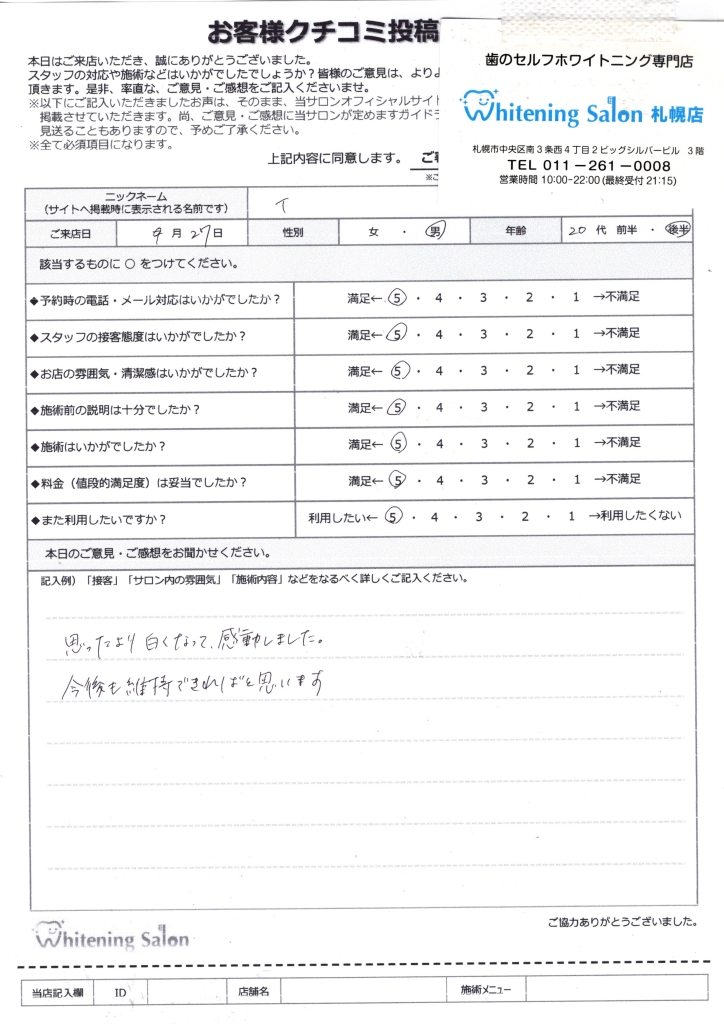 お客様クチコミ投稿
本日はご来店いただき、誠にありがとうございました。
スタッフの対応や施術などはいかがでしたでしょうか?皆様のご意見は、より
頂きます。是非、率直な、ご意見・ご感想をご記入くださいませ。
※以下にご記入いただきましたお声は、そのまま、当サロンオフィシャルサイト
掲載させていただきます。尚、ご意見・ご感想に当サロンが定めますガイド
見送ることもありますので、予めご了承ください。
※全て必須項目になります。
上記内容に同意します。
歯のセルフホワイトニング専門店
Whitening Salon 札幌店
札幌市中央区南3条西4丁目2ビッグシルバービル 3階
TEL 011-261-0008
営業時間 10:00~22:00 (最終受付 21:15)
ニックネーム
(サイトへ掲載時に表示される名前です) T
ご来店日 9月27日 性別 女 ・ 男 年齢 20代 前半 ・ 後半
該当するものに ○ をつけてください。
◆予約時の電話・メール対応はいかがでしたか? 満足← 5 ・ 4 ・ 3 ・ 2 ・ 1 →不満足
◆スタッフの接客態度はいかがでしたか? 満足← 5 ・ 4 ・ 3 ・ 2 ・ 1 →不満足
◆お店の雰囲気・清潔感はいかがでしたか? 満足← 5 ・ 4 ・ 3 ・ 2 ・ 1 →不満足
◆施術前の説明は十分でしたか? 満足← 5 ・ 4 ・ 3 ・ 2 ・ 1 →不満足
◆施術はいかがでしたか? 満足← 5 ・ 4 ・ 3 ・ 2 ・ 1 →不満足
◆料金(値段的満足度)は妥当でしたか? 満足← 5 ・ 4 ・ 3 ・ 2 ・ 1 →不満足
◆また利用したいですか? 利用したい← 5 ・ 4 ・ 3 ・ 2 ・ 1 →利用したくない
本日のご意見・ご感想をお聞かせください。
記入例)「接客」「サロン内の雰囲気」「施術内容」などをなるべく詳しくご記入ください。
思ったより白くなって、感動しました。
今後も維持できればと思います
ご協力ありがとうございました。
Whitening Salon
当店記入欄 ID 店舗名 施術メニュー